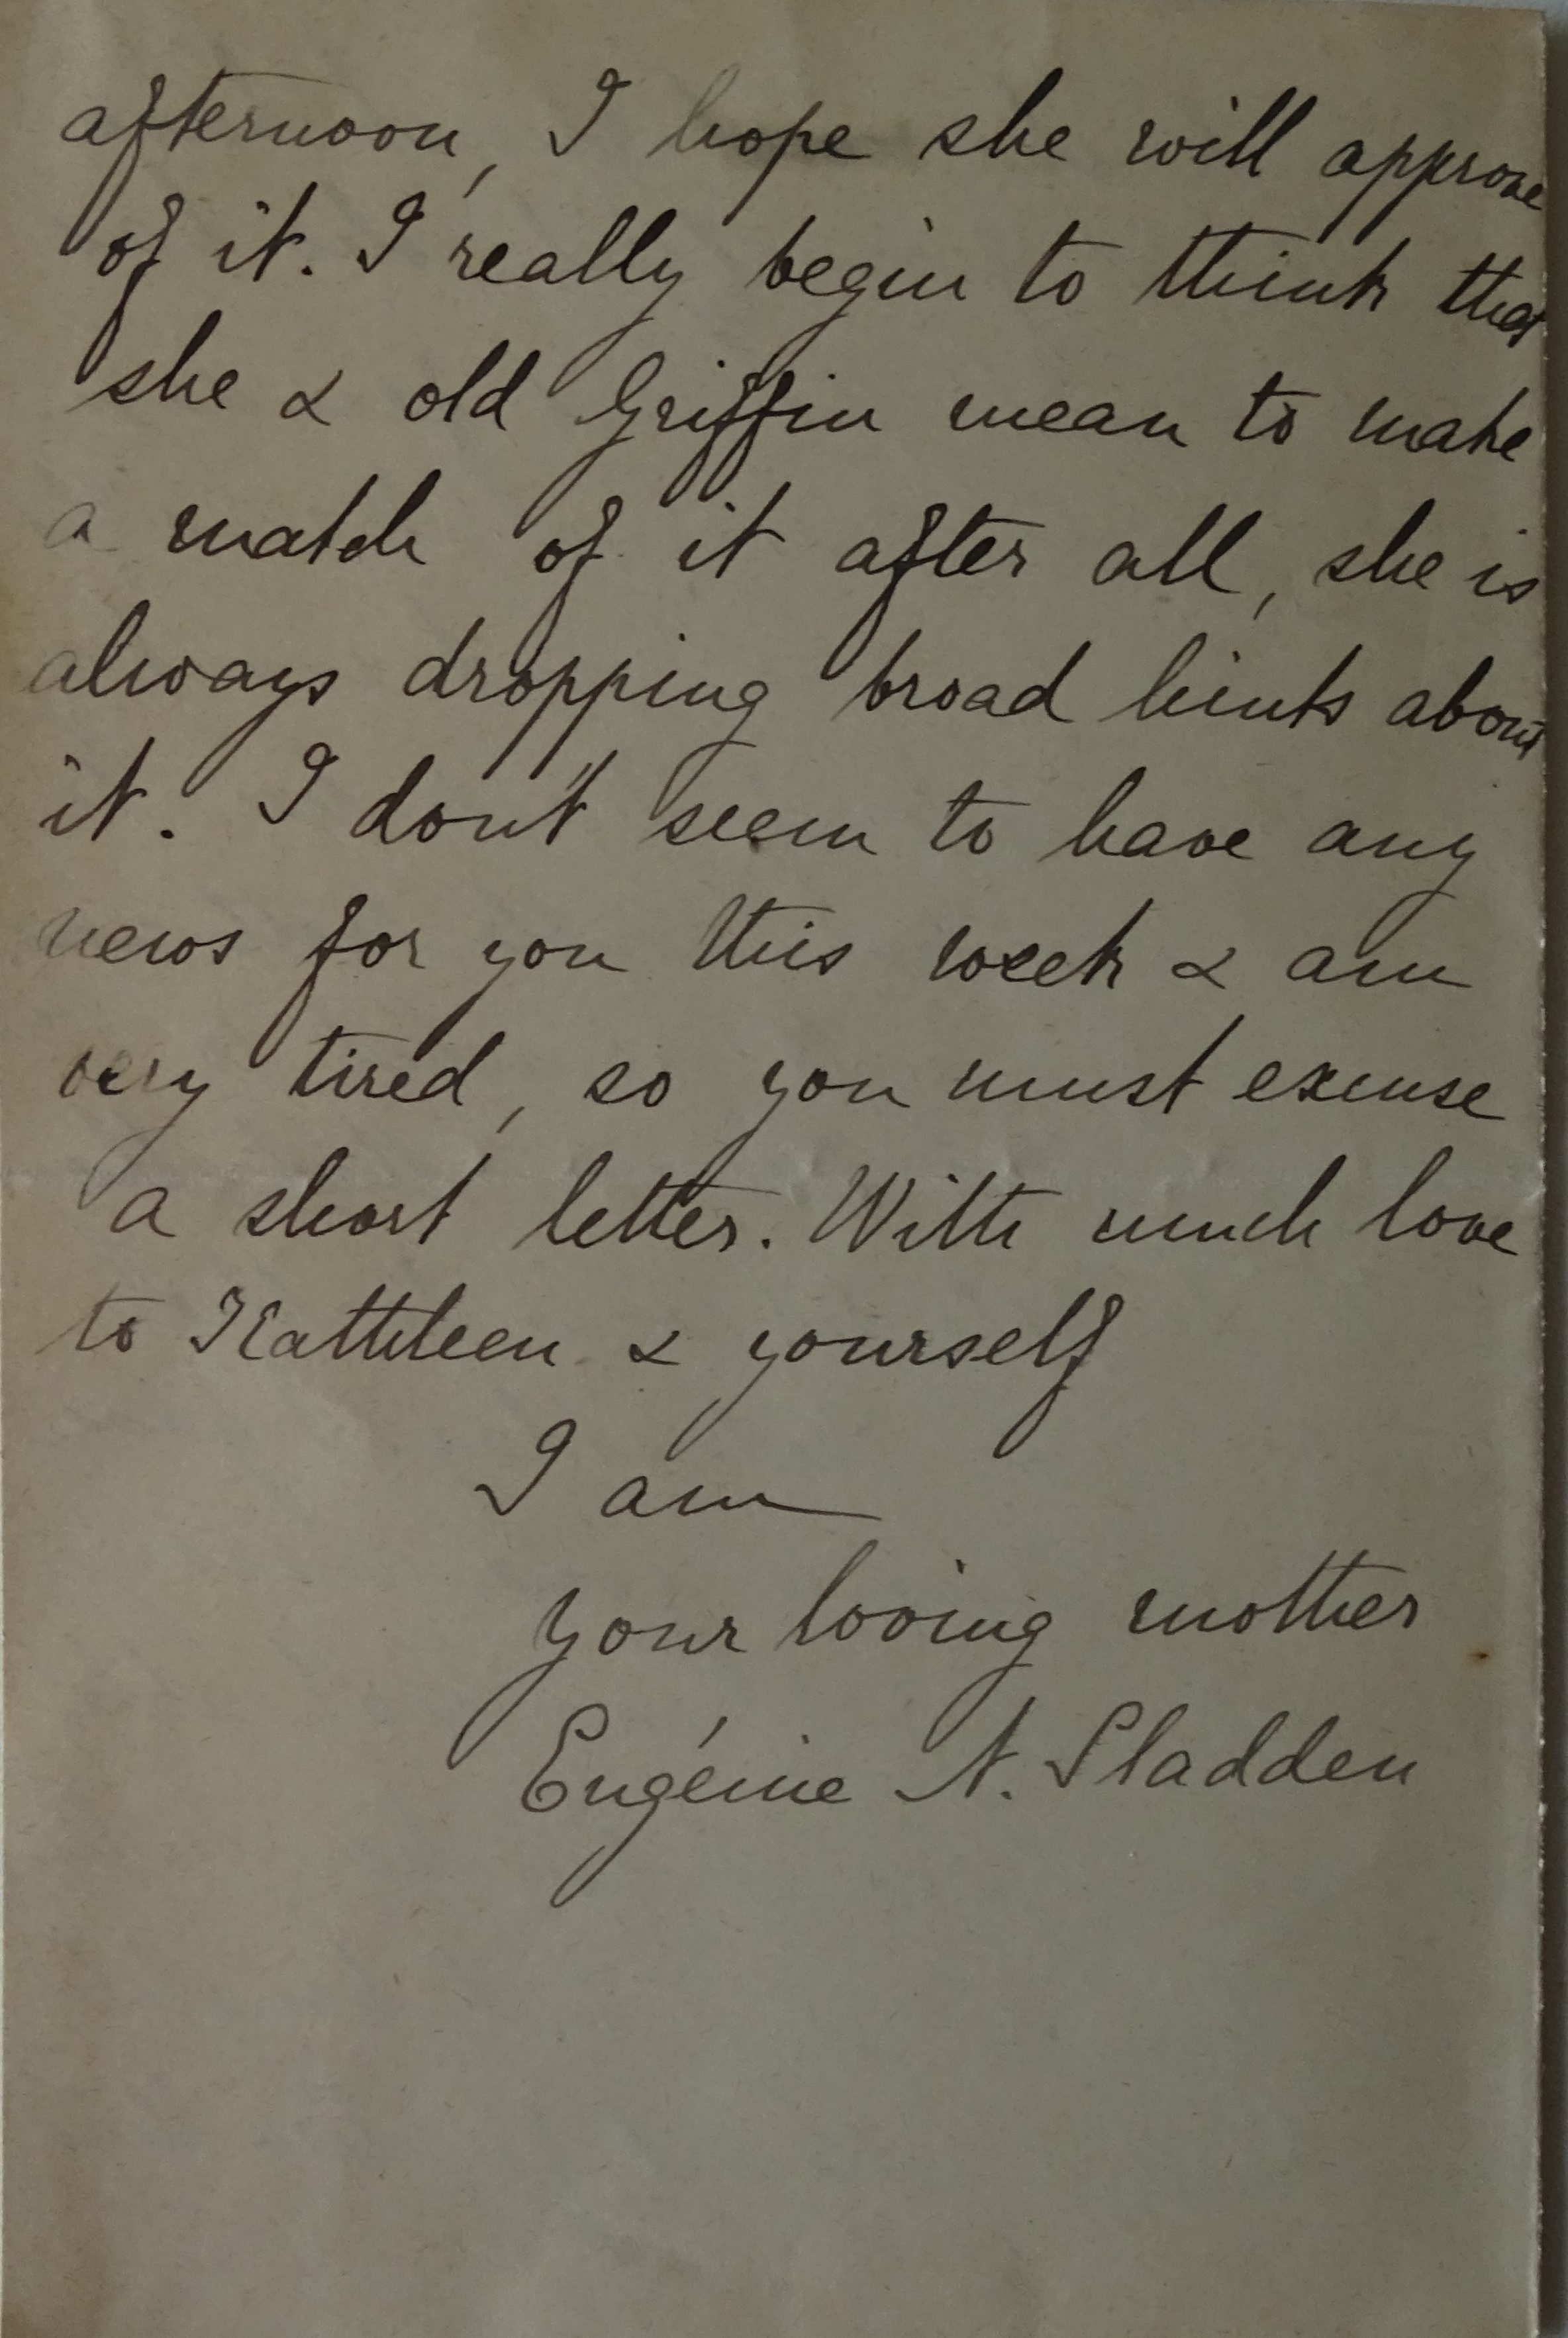 afternoon, I hope she will approve
of it. I really begin to think that
she & old Griffin mean to make
a match of it after all, she is
always dropping broad hints about
it. I don't seem to have any
news for you this week & am
very tired, so you must excuse
a short letter. With much love
to Kathleen & yourself
I am
your loving mother
Eugénie N. Sladden